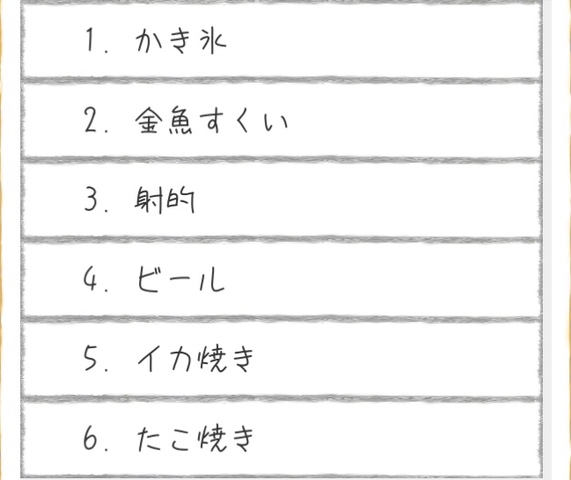 1. かき氷
2. 金魚すくい
3. 射的
4. ビール
5. イカ焼き
6. たこ焼き